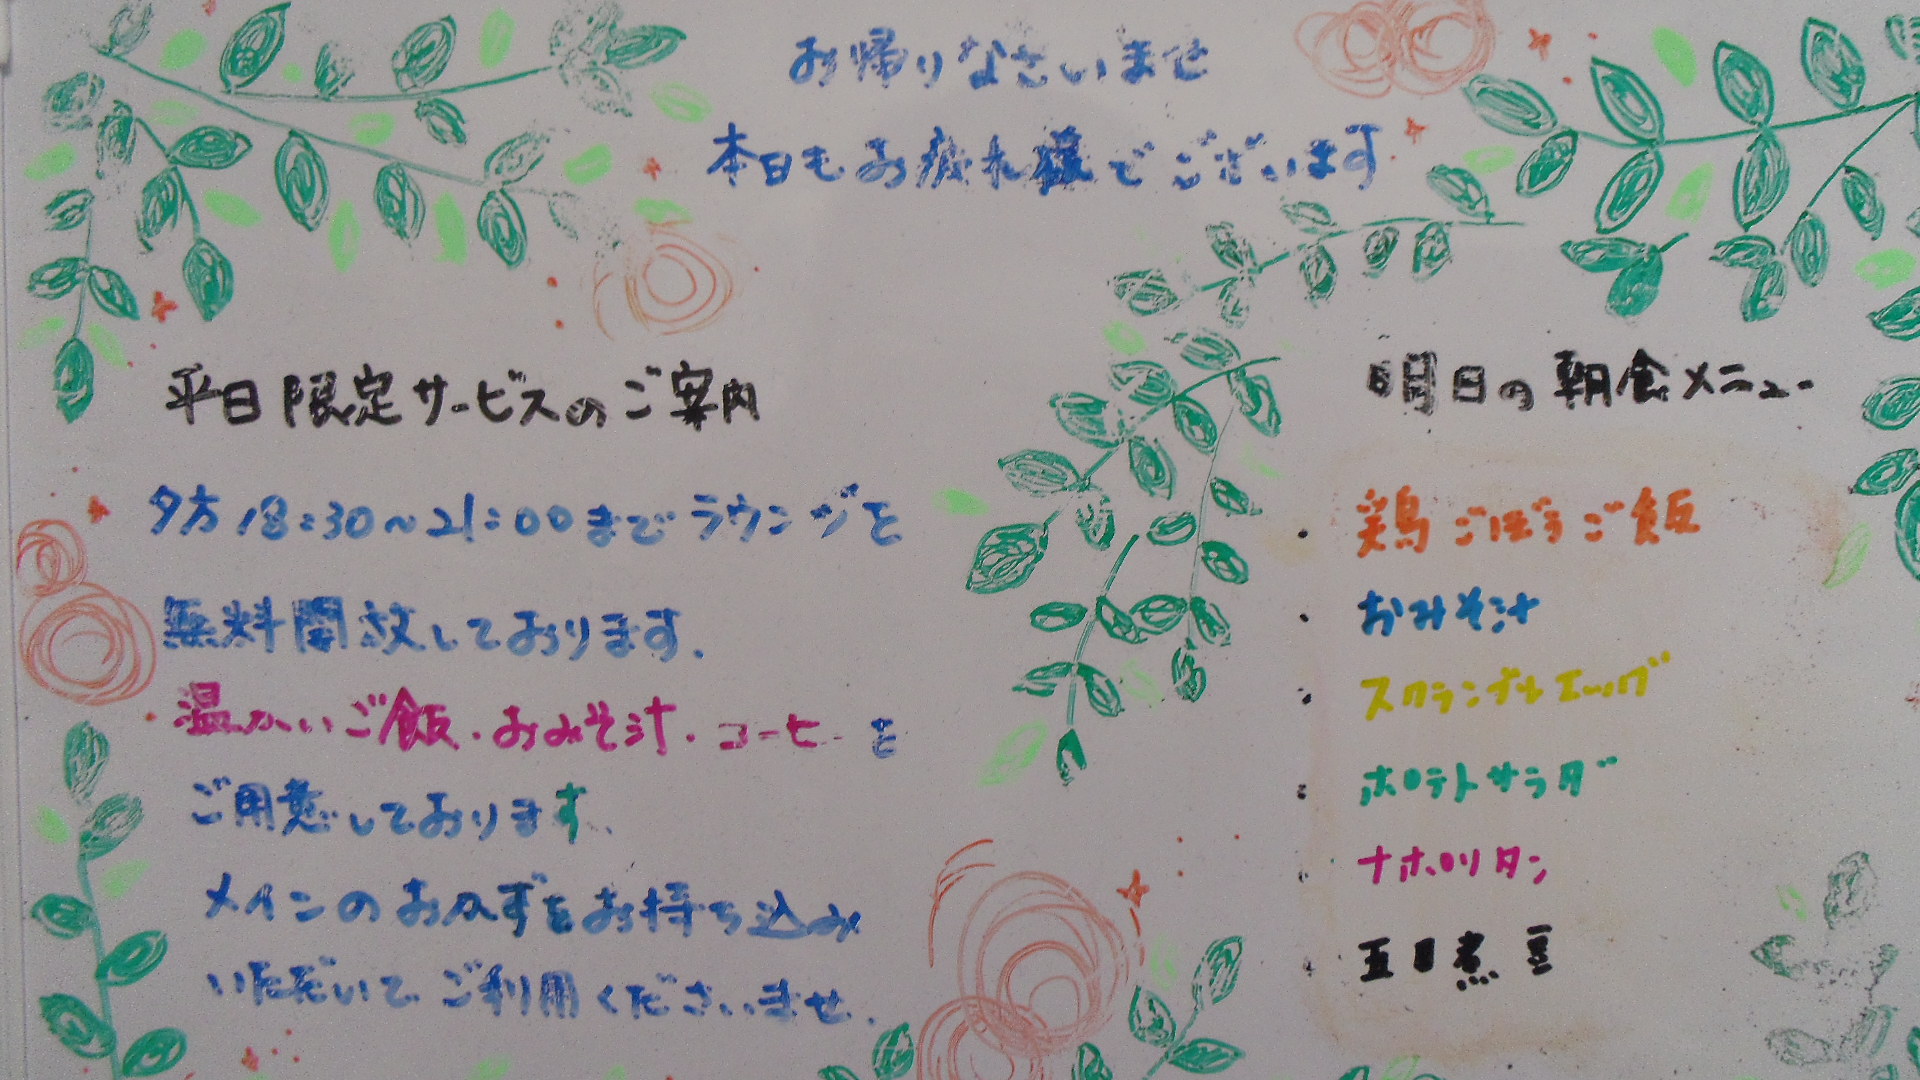 お帰りなさいませ
本日もお疲れ様でございます
平日限定サービスのご案内
夕方18:30~21:00までラウンジを
無料開放しております。
温かいご飯・おみそ汁・コーヒーを
ご用意しております。
メインのおかずをお持ち込み
いただいてご利用くださいませ。
明日の朝食メニュー
・鶏ごぼうご飯
・おみそ汁
・スクランブルエッグ
・ポテトサラダ
・ナポリタン
・五目煮豆